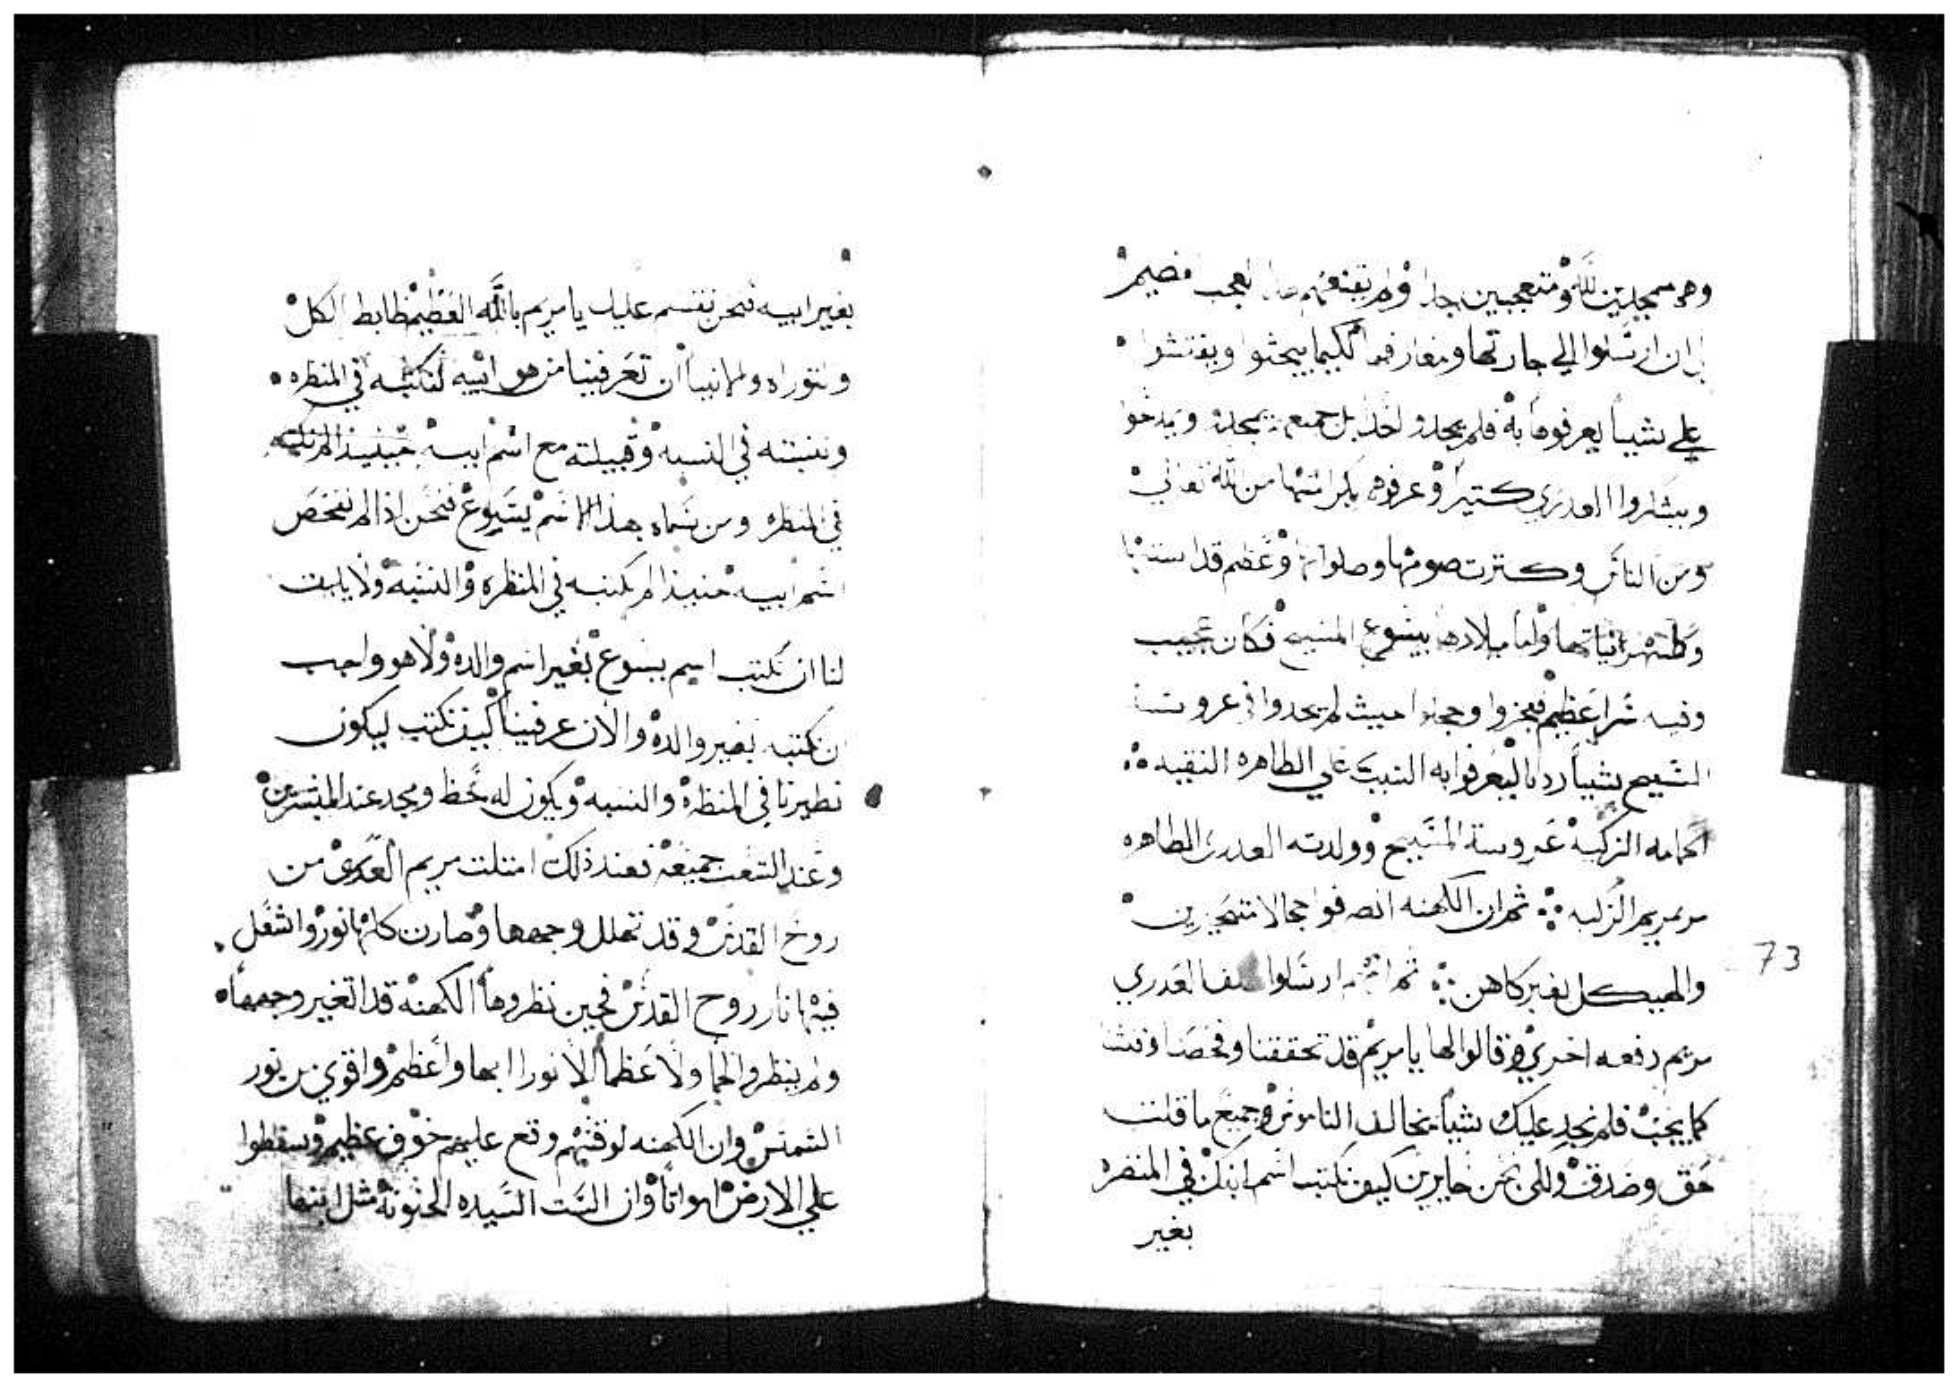 وهم ممجدين لله ومتعجبين جدا ولم يقنعهم هدا العجب فضيم
الي ان ارسلوا الي جارتها ومعارفها لكيما يبحثوا ويفتشوا
علي شيا يعرفوها به فلم يجدوا احد بل جميعهم يمجدو ويمدحوا
ويشكروا العدري كتيرا وعرفوهم بكرامتها من الله تعالي
ومن الناس وكترت صومها وصلواتها وعظم قداستها
وطهرانياتها ولما ميلادها بيسوع المسيح فكان عجيب
وفيه سرا عظيم فعجزوا وحجلوا حيث لم يجدوا في عروسة
المسيح شيا رديا ليعرفوا به التبت علي الطاهره النقيه
الحمامه الزكيه عروسة المسيح وولدته العدرى الطاهره
مرتمريم الزكيه ثم ان الكهنه انصرفوا حجالا متحيرين
والهيكل بغير كاهن ثم انهم ارسلوا خلف العدري
مريم دفعه اخري وقالوا لها يا مريم قد تحققنا وفحصنا وفتشنا
كما يجب فلم نجد عليك شيا يخالف الناموس وجميع ما قلت
حق وصدق ولكن نحن حايرين كيف نكتب اسم ابنك في المنضره
بغير
73
بغير ابيه فنحن نقسم عليك يا مريم بالله العظيم ظابط الكل
والتوراه والانبيا ان تعرفينا من هو ابيه لنكتبه في المنظره
وننبته في النسبه وقبيلته مع اسم ابيه حينيذ الم نكتبه
في المنظره ومن سماه بهذا الاسم يسوع فنحن اذا لم نفحص
اسم ابيه حنيذ لم نكتبه في المنظره والنسبه ولا يليق
لنا ان نكتب اسم يسوع بغير اسم والده ولا هو واجب
ان نكتبه بغير والده والان عرفينا كيف نكتب ليكون
نظيرنا في المنظره والنسبه ويكون له حظ ومجد عند المفسرين
وعند الشعب جميعه فعند ذلك امتلت مريم العدرى من
روح القدس وقد تهلل وجهها وصارت كلها نور واشغل
فيها نار روح القدس فحين نظروها الكهنه قد اتغير وجهها
ولم ينظروا لحما ولا عظما الا نورا ابها واعظم واقوي من نور
الشمس وان الكهنه لوقتهم وقع عليهم خوف عظيم وسقطوا
علي الارض امواتا وان الست السيده الحنونه مثل ابنها